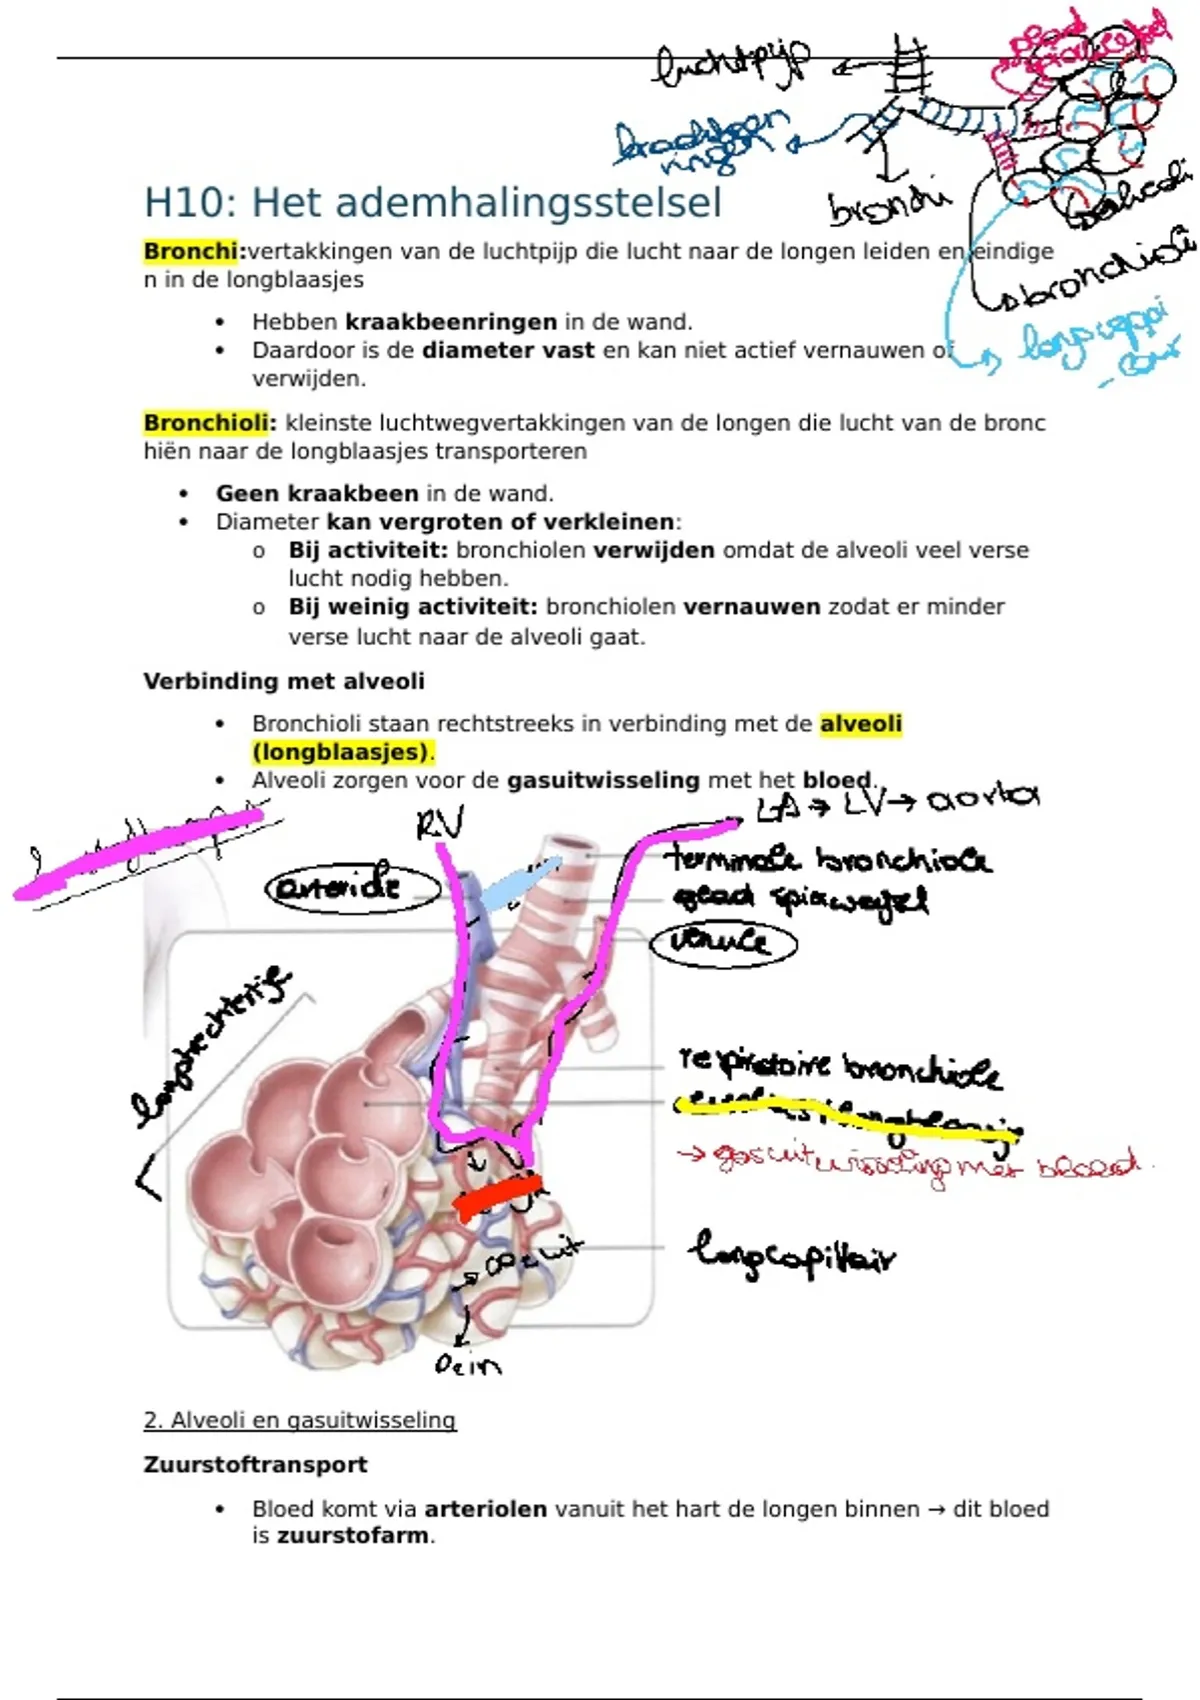 luchtpijp
glad spierweefsel
kraakbeen
ringen
bronchi
alveoli
bronchioli
longcapillair
H10: Het ademhalingsstelsel
Bronchi:vertakkingen van de luchtpijp die lucht naar de longen leiden en eindige
n in de longblaasjes
• Hebben kraakbeenringen in de wand.
• Daardoor is de diameter vast en kan niet actief vernauwen of
verwijden.
Bronchioli: kleinste luchtwegvertakkingen van de longen die lucht van de bronc
hiën naar de longblaasjes transporteren
• Geen kraakbeen in de wand.
• Diameter kan vergroten of verkleinen:
o Bij activiteit: bronchiolen verwijden omdat de alveoli veel verse
lucht nodig hebben.
o Bij weinig activiteit: bronchiolen vernauwen zodat er minder
verse lucht naar de alveoli gaat.
Verbinding met alveoli
• Bronchioli staan rechtstreeks in verbinding met de alveoli
(longblaasjes).
• Alveoli zorgen voor de gasuitwisseling met het bloed.
RV
LA → LV → aorta
terminale bronchiole
arteriole
glad spierweefsel
venule
longtrechtertje
respiratoire bronchiole
→ gasuitwisseling met bloed.
longcapillair
→ CO2 uit
O2 in
2. Alveoli en gasuitwisseling
Zuurstoftransport
• Bloed komt via arteriolen vanuit het hart de longen binnen → dit bloed
is zuurstofarm.